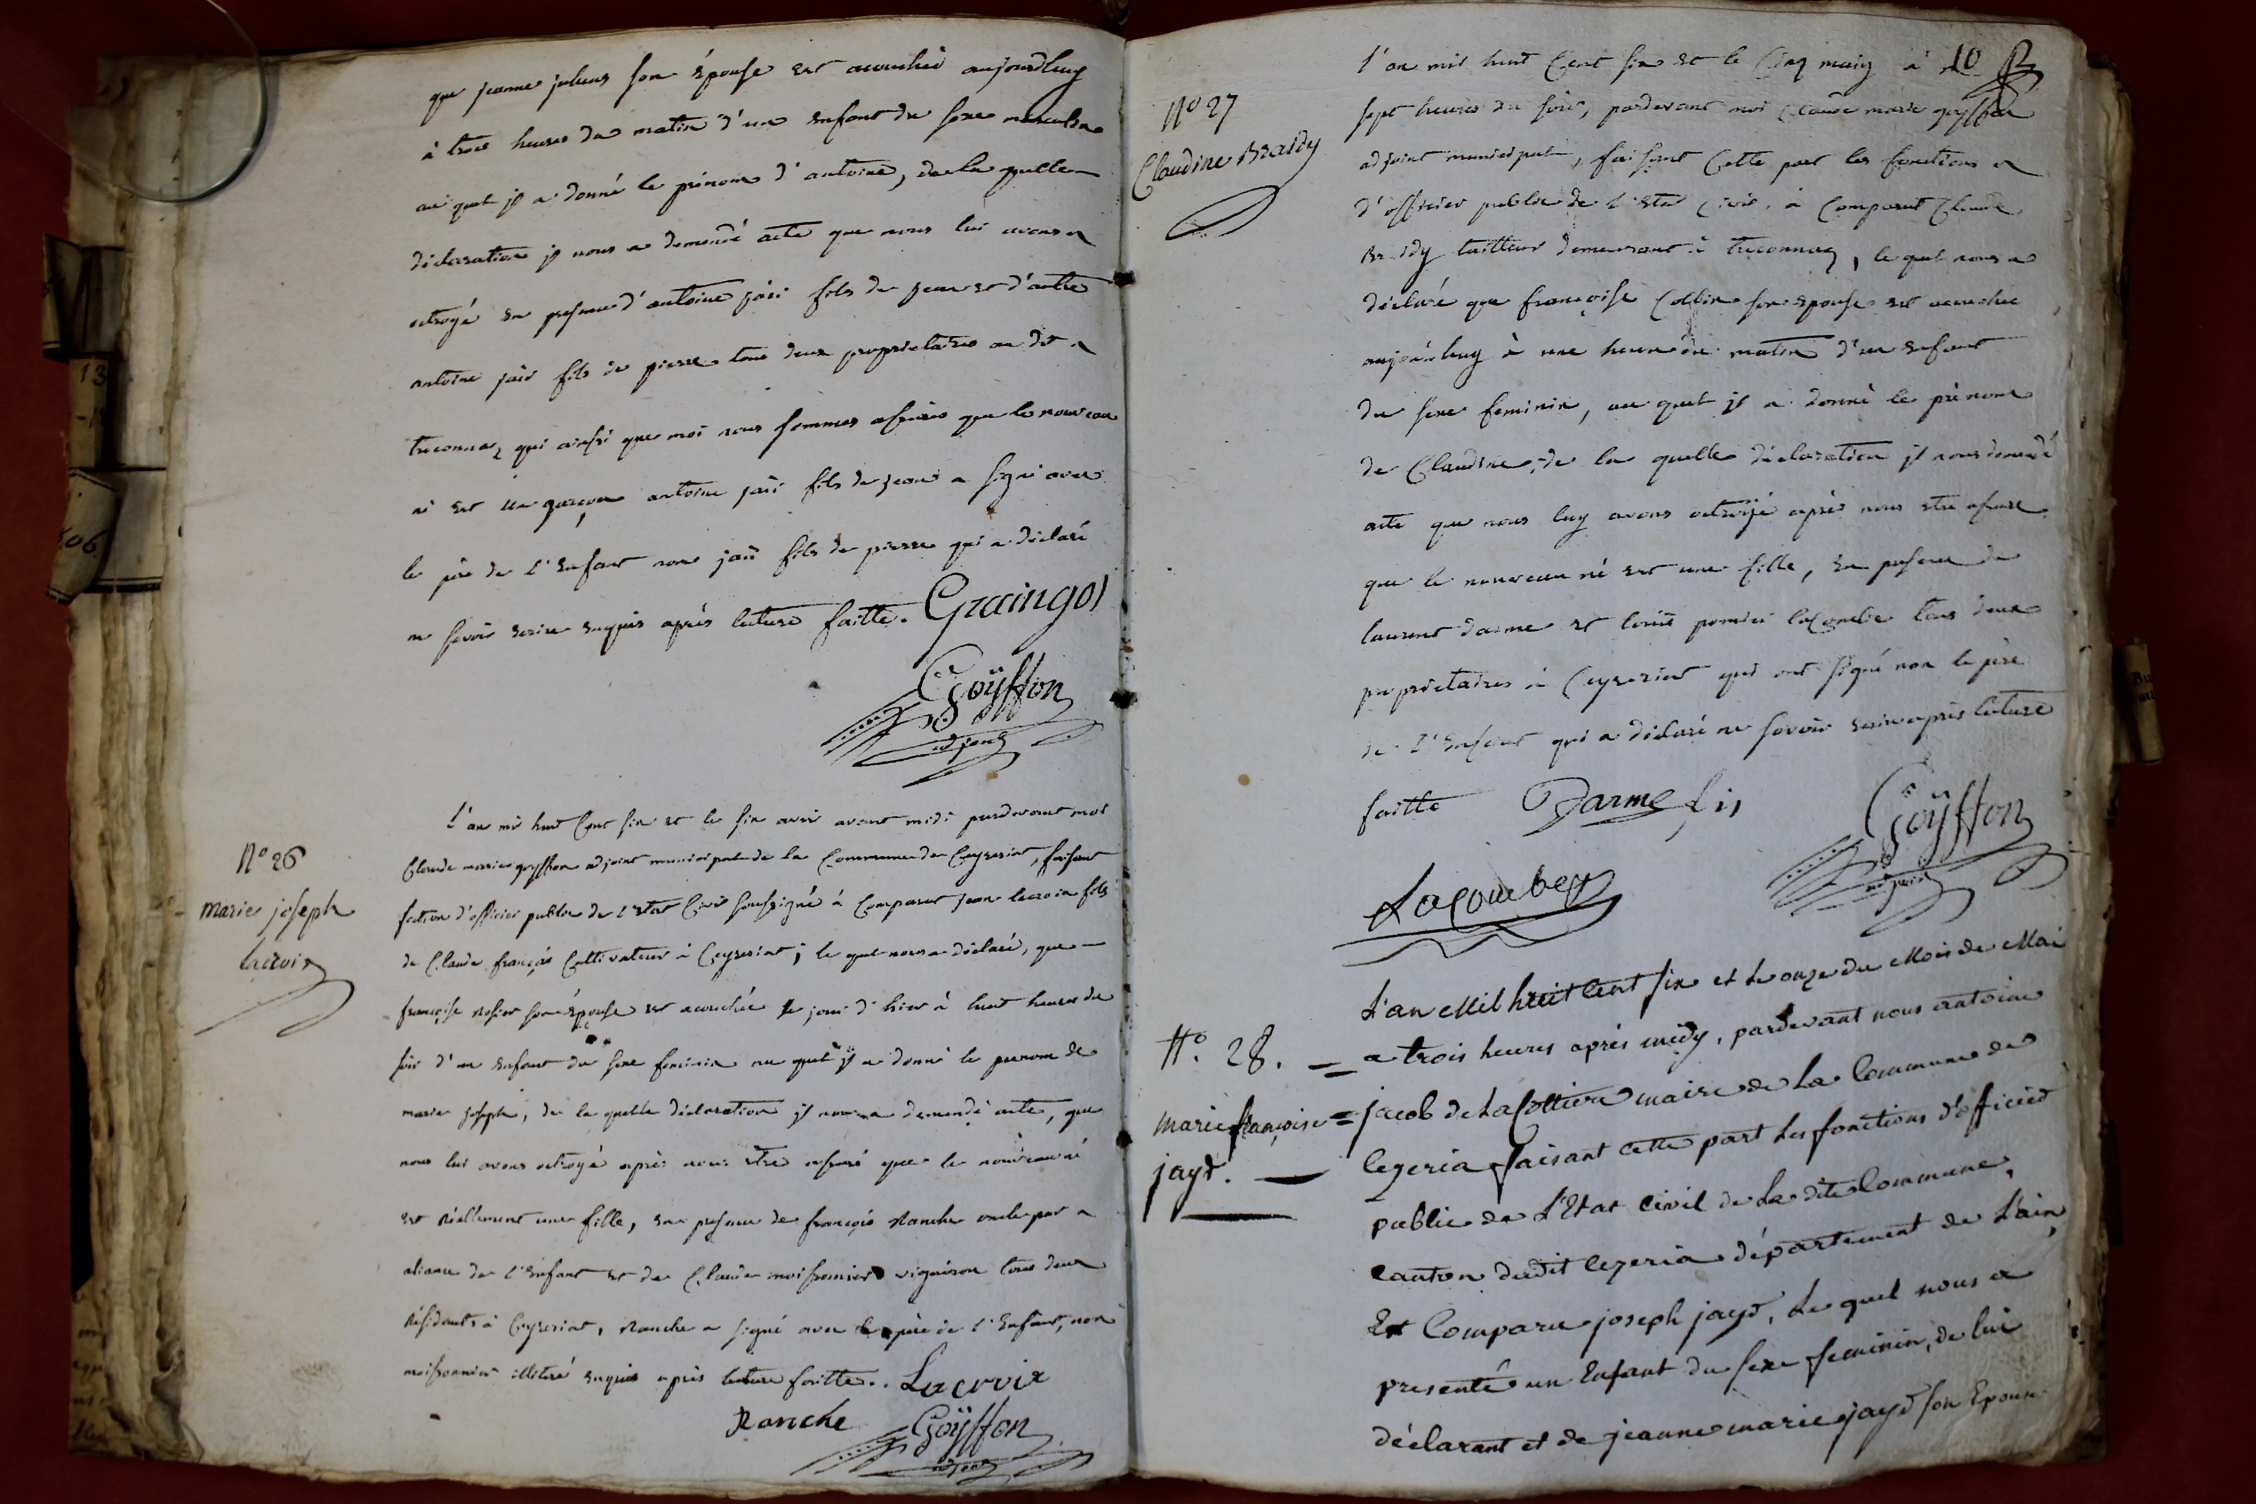 que jeanne juliens son épouse est acouchée aujourdhuy
à trois heures du matin d'un enfant du sexe masculin
au quel jl a donné le prénom d'antoine, de la quelle
déclaration jl nous a demandé acte que nous lui avons
octroyé en presence d'antoine fils de jean et d'autre
antoine fils de pierre tous deux proprietaires au dit
treconnaz qui ainssi que moi nous sommes assurés que le nouveau
né est un garçon antoine fils de jean a signé avec
le père de l'enfant non fils de pierre qui a déclaré
ne savoir écrire enquis après lecture faitte. Graingot
Goÿffon
adjoint
N° 26
marie joseph
lacroix
L'an mil huit Cent six et le six avril avant midi pardevant moi
Claude marie goyffon adjoint municipal de la Commune de Ceyzeriat, faisant
fonction d'officier public de l'état Civil soussigné à Comparut jean lacroix fils
de Claude françois Cultivateur à Ceyzeriat; le quel nous a déclaré, que
françoise son épouse est acouchée le jour d'hier à huit heures du
soir d'un enfant du sexe feminin au quel jl a donné le prenom de
marie joseph, de la quelle déclaration jl nous a demandé acte, que
nous lui avons octroyé après nous être assuré que le nouveau né
est réellement une fille, en presence de françois Ranche oncle par
aliance de l'enfant et de Claude moissonnier vigneron tous deux
résidants à Ceyzeriat, Ranche a signé avec le père de l'enfant, non
moissonnier illiteré enquis après lecture faitte. Lacroix
Ranche Goÿffon
adjoint
10
N° 27
Claudine Braidy
l'an mil huit Cent six et le Cinq may à
sept heures du soir, pardevant moi Claude marie goyffon
adjoint municipal, faisant Cette part les fonctions
d'officier public de l'état Civil à Comparut Claude
Braidy tailleur demeurant à treconnaz, le quel nous a
déclaré que françoise Collin son épouse est acouchée
aujourdhuy à une heure du matin d'un enfant
du sexe feminin, au quel jl a donné le prénom
de Claudine, de la quelle déclaration jl nous a demandé
acte que nous luy avons octroyé après nous etre assuré
que le nouveau né est une fille, en presence de
laurent darme et louis lacombe tous deux
proprietaires à Ceyzeriat qui ont signé non le père
de l'enfant qui a déclaré ne savoir écrire après lecture
faitte Darme fils Goÿffon
Lacombe adjoint
N°. 28.
marie françoise
jayr.
L'an Mil huit Cent six et Le onze du Mois de Mai
a trois heures après midy, pardevant nous antoine
jacob de La Cottiere maire de La Commune de
Cezeria faisant cette part Les fonctions d'officier
public de L'Etat civil de La dite Commune,
canton dudit Cezeria département de L'ain,
Est Comparu joseph jayr, Le quel nous a
presenté un Enfant du sexe feminin, de lui
déclarant et de jeanne marie jayr son Epouse